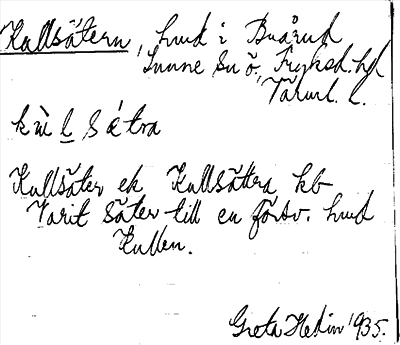 Kullsätern, hmd i Buårud
Sunne sn ö, Fryksd. hd
Värml. l.
kùl sǽtra
Kullsäter ek Kullsättra kb
Varit säter till en försv. hmd
Kullen.
Greta Hedin 1935.